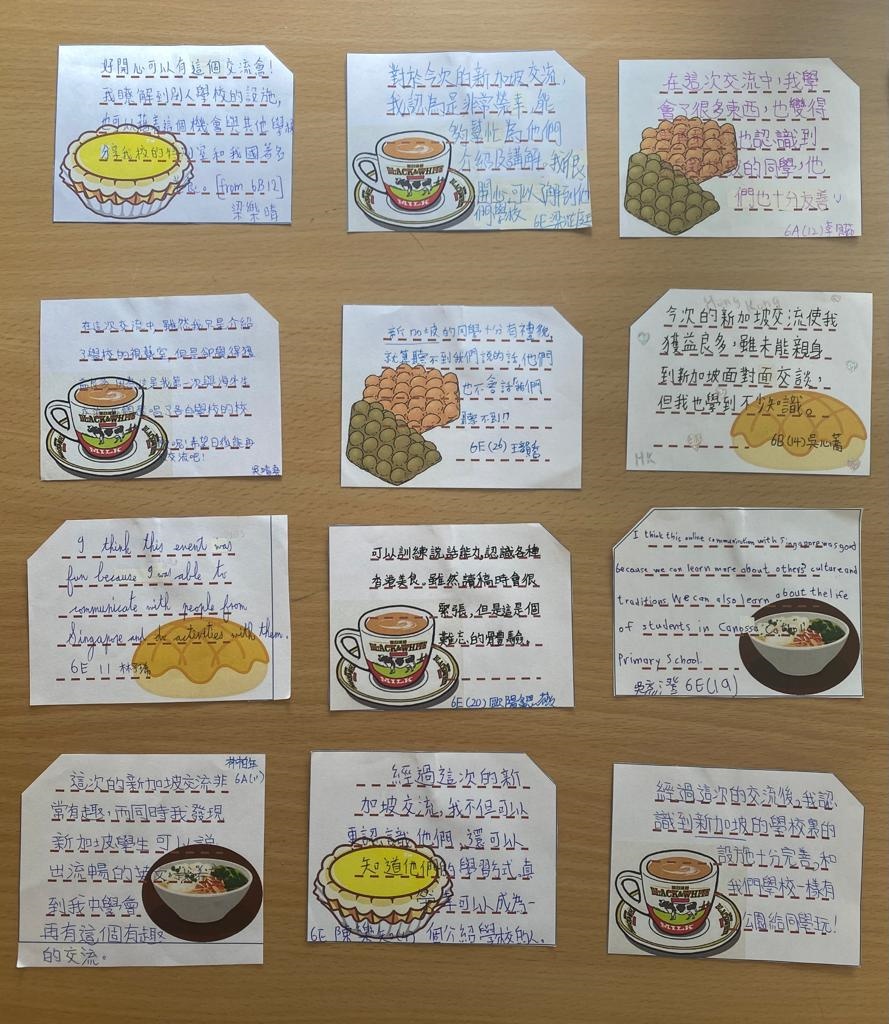 好開心可以有這個交流會!
我瞭解到別人學校的設施,
也可以藉着這個機會與其他學校
分享我校的特 室和我國著多
[from 6B12]
梁樂晴
對於今次的新加坡交流,
我認為是非常榮幸,能
夠製作為他們
介紹及講解,我很
開心可以 到他
們學校
6E
在這次交流中,我學
會了很多東西,也變得
也認識到
的同學,他
們也十分友善
6A(12)
在這次交流中,雖然我只是介紹
了學校的視藝室,但是卻覺得獲
益良多,因為這是我第一次與海外生
交流
呢!希望日後能再
交流吧!
新加坡的同學十分有禮貌,
就算聽不到我們說的話,他們
也不會話我們
聽不到!?
6E(26)
Hong Kong
今次的新加坡交流使我
獲益良多,雖未能親身
到新加坡面對面交談,
但我也學到不少知識。
6B(14)吳心
HK
I think this event was
fun because I was able to
communicate with people from
Singapore and do activities with them.
6E 11 林
可以訓練說話能力,認識各種
香港美食。雖然讀稿時會很
緊張,但是這是個
難忘的 體驗。
6E(20)歐陽
I think this online communication with Singapore was good
because we can learn more about others' culture and
traditions. We can also learn about the life
of students in Canossa Catholic
Primary School.
6E(19)
6A(11)
這次的新加坡交流非
常有趣,而同時我發現
新加坡學生可以說
出流暢的英文
到我中學會
再有這個有趣
的交流。
經過這次的新
加坡交流,我不但可以
更認識他們,還可以
知道他們的學習方式,真
可以成為一
6E 陳樂 個介紹學校的人。
經過這次的交流後,我認
識到新加坡的學校裏的
設施十分完善,和
我們學校一樣有
公園給同學玩!
BLACK&WHITE
MILK
BLACK&WHITE
MILK
BLACK&WHITE
MILK
BLACK&WHITE
MILK